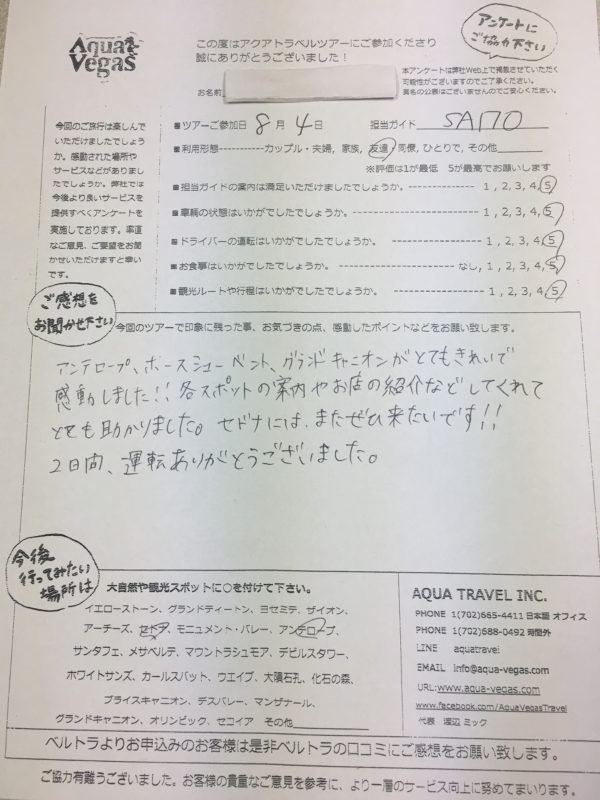 Aqua
Vegas
この度はアクアトラベルツアーにご参加くださり
誠にありがとうございました！
アンケートに
ご協力下さい
本アンケートは弊社Web上で掲載させていただく
可能性がございますのでご了承ください。
真名の公表はございませんのでご安心ください。
お名前
今回のご旅行は楽しんで
いただけましたでしょう
か。感動された場所や
サービスなどがありまし
たでしょうか。弊社では
今後より良いサービスを
提供すべくアンケートを
実施しております。率直
なご意見、ご要望をお聞
かせいただけますと幸い
です。
■ツアーご参加日 8 月 4 日 担当ガイド SAITO
■利用形態-----------カップル・夫婦, 家族, 友達, 同僚, ひとりで, その他
※評価は1が最低 5が最高でお願いします
■担当ガイドの案内は満足いただけましたでしょうか。--------------- 1, 2, 3, 4, 5
■車輌の状態はいかがでしたでしょうか。--------------------------- 1, 2, 3, 4, 5
■ドライバーの運転はいかがでしたでしょうか。--------------------- 1, 2, 3, 4, 5
■お食事はいかがでしたでしょうか。------------------------ なし, 1, 2, 3, 4, 5
■観光ルートや行程はいかがでしたでしょうか。--------------------- 1, 2, 3, 4, 5
ご感想を
お聞かせ下さい
今回のツアーで印象に残った事、お気づきの点、感動したポイントなどをお願い致します。
アンテロープ、ホースシューベント、グランドキャニオンがとてもきれいで
感動しました!! 各スポットの案内やお店の紹介などしてくれて
とても助かりました。セドナには、またぜひ来たいです!!
2日間、運転ありがとうございました。
今後
行ってみたい
場所は
大自然や観光スポットに○を付けて下さい。
イエローストーン、グランドティートン、ヨセミテ、ザイオン、
アーチーズ、セドナ、モニュメント・バレー、アンテロープ、
サンタフェ、メサベルデ、マウントラシュモア、デビルスタワー、
ホワイトサンズ、カールスバット、ウエイブ、大隕石孔、化石の森、
ブライスキャニオン、デスバレー、マンザナール、
グランドキャニオン、オリンピック、セコイア その他
AQUA TRAVEL INC.
PHONE 1(702)665-4411 日本語 オフィス
PHONE 1(702)688-0492 時間外
LINE aquatravel
EMAIL info@aqua-vegas.com
URL:www.aqua-vegas.com
www.facebook.com/AquaVegasTravel
代表 渡辺 ミック
ベルトラよりお申込みのお客様は是非ベルトラの口コミにご感想をお願い致します。
ご協力有難うございました。お客様の貴重なご意見を参考に、より一層のサービス向上に努めてまいります。